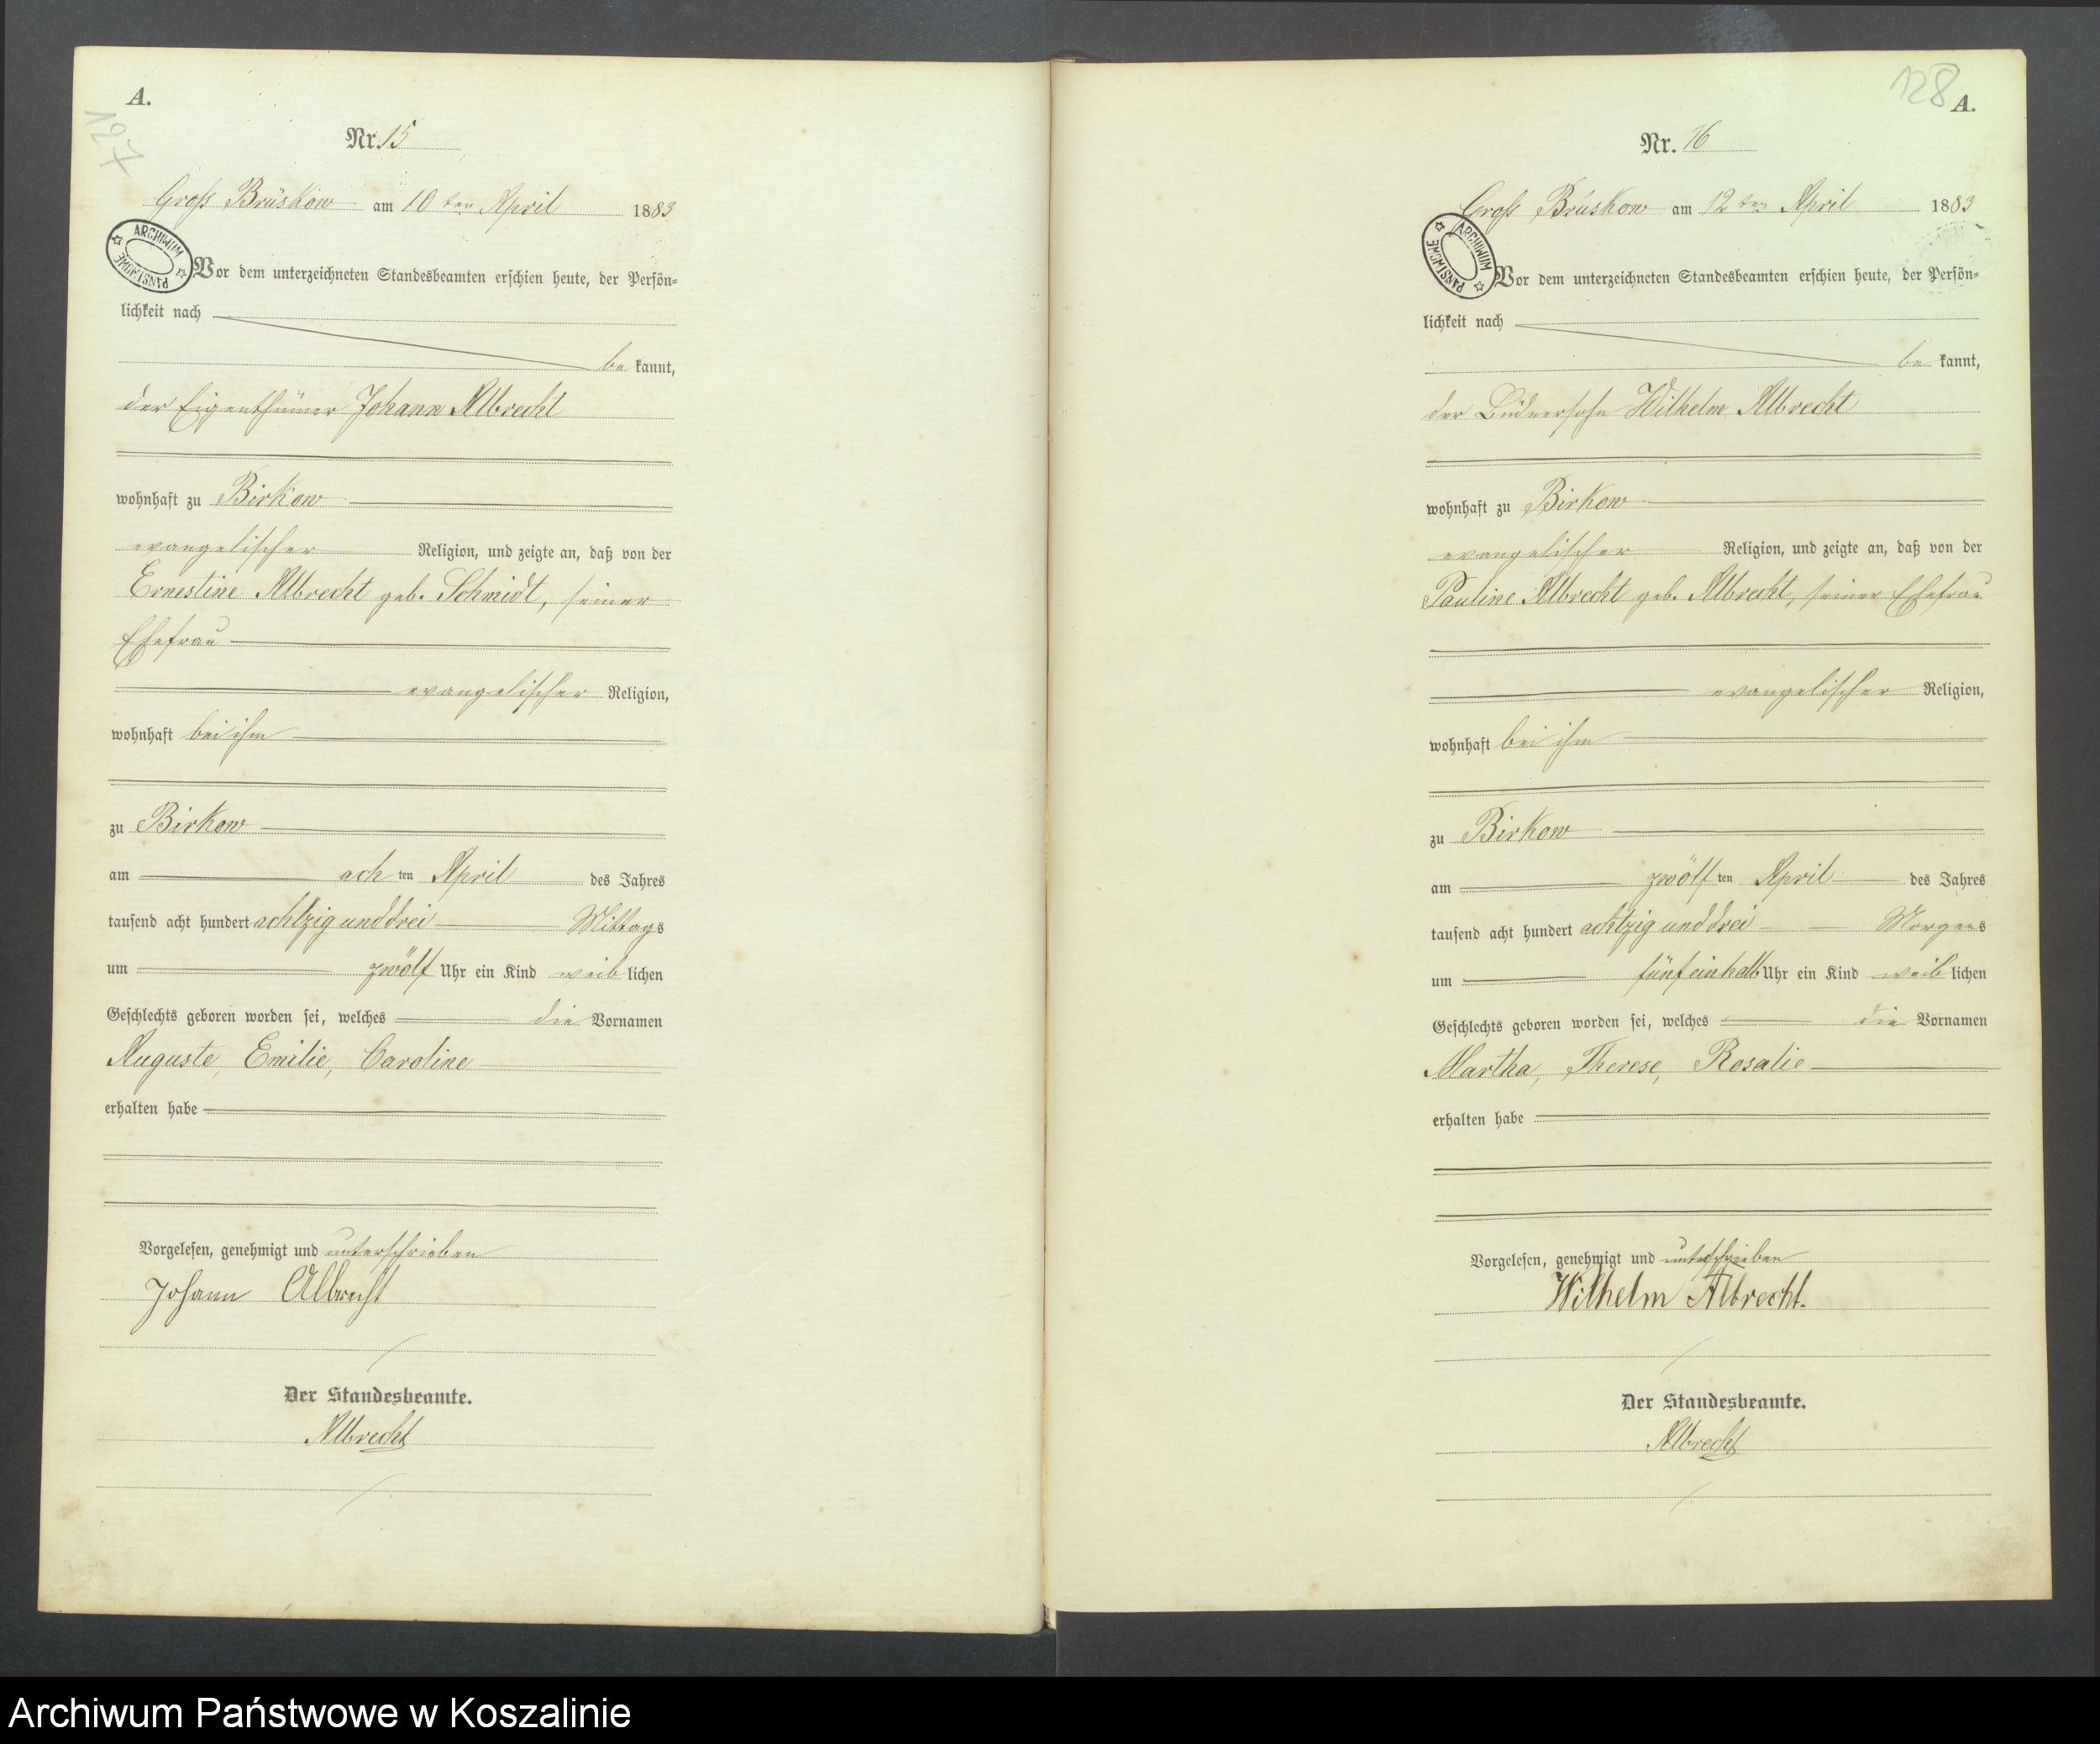 A.
127
Nr. 15
Groß Brüskow am 10ten April 1883
ARCHIWUM PAŃSTWOWE
Vor dem unterzeichneten Standesbeamten erschien heute, der Persön-
lichkeit nach
be kannt,
der Eigenthümer Johann Albrecht
wohnhaft zu Birkow
evangelischer Religion, und zeigte an, daß von der
Ernestine Albrecht geb. Schmidt, seiner
Ehefrau
evangelischer Religion,
wohnhaft bei ihm
zu Birkow
am ach ten April des Jahres
tausend acht hundert achtzig und drei Mittags
um zwölf Uhr ein Kind weib lichen
Geschlechts geboren worden sei, welches die Vornamen
Auguste, Emilie, Caroline
erhalten habe
Vorgelesen, genehmigt und unterschrieben
Johann Albrecht
Der Standesbeamte.
Albrecht
128
A.
Nr. 16
Groß Brüskow am 12ten April 1883
ARCHIWUM PAŃSTWOWE
Vor dem unterzeichneten Standesbeamten erschien heute, der Persön-
lichkeit nach
be kannt,
der Büdnersohn Wilhelm Albrecht
wohnhaft zu Birkow
evangelischer Religion, und zeigte an, daß von der
Pauline Albrecht geb. Albrecht, seiner Ehefrau
evangelischer Religion,
wohnhaft bei ihm
zu Birkow
am zwölf ten April des Jahres
tausend acht hundert achtzig und drei Morgens
um fünfeinhalb Uhr ein Kind weib lichen
Geschlechts geboren worden sei, welches die Vornamen
Martha, Therese, Rosalie
erhalten habe
Vorgelesen, genehmigt und unterschrieben
Wilhelm Albrecht.
Der Standesbeamte.
Albrecht
Archiwum Państwowe w Koszalinie